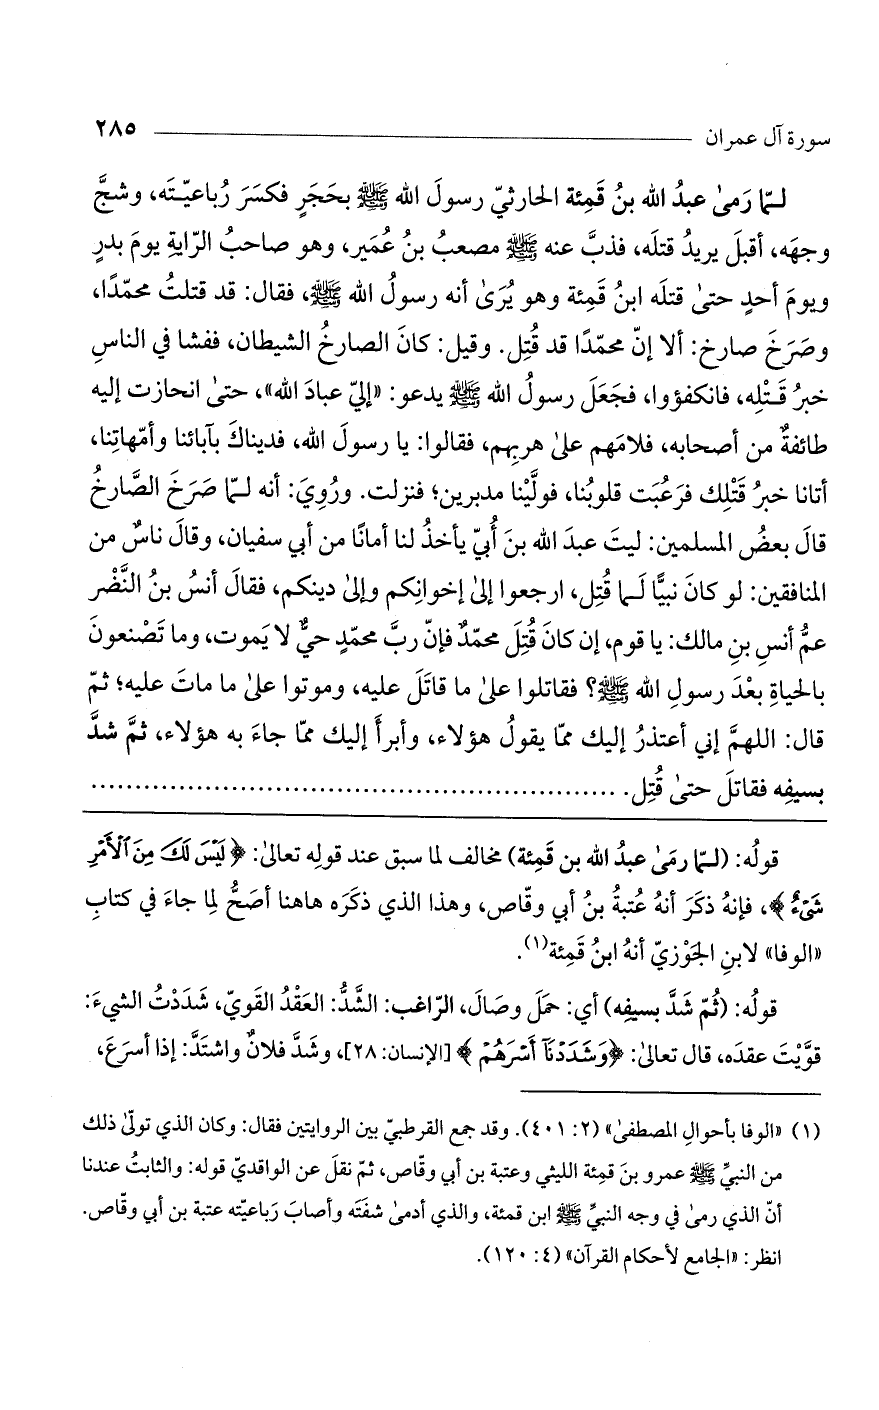 سورة آل عمران ٢٨٥
لـمّا رَمىٰ عبدُ الله بنُ قَمِئة الحارثيّ رسولَ الله ﷺ بحَجَرٍ فكسَرَ رُباعيّـتَه، وشجَّ
وجهَه، أقبلَ يريدُ قتلَه، فذبَّ عنه ﷺ مصعبُ بنُ عُمَير، وهو صاحبُ الرّايةِ يومَ بدرٍ
ويومَ أحدٍ حتىٰ قتلَه ابنُ قَمِئة وهو يُرَىٰ أنه رسولُ الله ﷺ، فقال: قد قتلتُ محمّدًا،
وصَرَخَ صارخ: ألا إنّ محمّدًا قد قُتِل. وقيل: كانَ الصارخُ الشيطان، ففشا في الناسِ
خبرُ قَـتْلِه، فانكفؤوا، فجَعَلَ رسولُ الله ﷺ يدعو: «إليّ عبادَ الله»، حتىٰ انحازت إليه
طائفةٌ من أصحابه، فلامَهم علىٰ هربِهم، فقالوا: يا رسولَ الله، فديناكَ بآبائنا وأمّهاتِنا،
أتانا خبرُ قَتْلِك فرَعُبَت قلوبُنا، فولَّيْنا مدبرين؛ فنزلت. ورُوِيَ: أنه لـمّا صَرَخَ الصَّارخُ
قالَ بعضُ المسلمين: ليتَ عبدَ الله بنَ أُبيّ يأخذُ لنا أمانًا من أبي سفيان، وقالَ ناسٌ من
المنافقين: لو كانَ نبيًّا لَـما قُتِل، ارجعوا إلىٰ إخوانِكم وإلىٰ دينكم، فقالَ أنسُ بنُ النَّضْر
عمُّ أنسِ بنِ مالك: يا قوم، إن كانَ قُتِلَ محمّدٌ فإنّ ربَّ محمّدٍ حيٌّ لا يَموت، وما تَصْنعونَ
بالحياةِ بعْدَ رسولِ الله ﷺ؟ فقاتلوا علىٰ ما قاتَلَ عليه، وموتوا علىٰ ما ماتَ عليه؛ ثمّ
قال: اللهمَّ إني أعتذرُ إليك ممّا يقولُ هؤلاء، وأبرأُ إليك ممّا جاءَ به هؤلاء، ثمَّ شدَّ
بسيفِه فقاتلَ حتىٰ قُتِل. ..........................................................
قولُه: (لـمّا رمَىٰ عبدُ الله بن قَمِئة) مخالف لما سبق عند قولِه تعالىٰ: ﴿لَيْسَ لَكَ مِنَ ٱلْأَمْرِ
شَىْءٌ﴾، فإنهُ ذكَرَ أنهُ عُتبةُ بنُ أبي وقّاص، وهذا الذي ذكَرَه هاهنا أصَحُّ لِما جاءَ في كتابِ
«الوفا» لابنِ الجَوْزيّ أنهُ ابنُ قَمِئة(١).
قولُه: (ثُمّ شَدَّ بسيفِه) أي: حمَلَ وصَالَ، الرّاغب: الشَّدُّ: العَقْدُ القَويّ، شَدَدْتُ الشيءَ:
قوَّيْتَ عقدَه، قال تعالىٰ: ﴿وَشَدَدْنَآ أَسْرَهُمْ﴾ [الإنسان: ٢٨]، وشَدَّ فلانٌ واشتَدَّ: إذا أسرَعَ،
(١) «الوفا بأحوالِ المصطفىٰ» (٢: ٤٠١). وقد جمع القرطبيّ بين الروايتين فقال: وكان الذي تولّىٰ ذلك
من النبيِّ ﷺ عمرو بنَ قمئة الليثي وعتبة بن أبي وقّاص، ثمّ نقلَ عن الواقديّ قوله: والثابتُ عندنا
أنّ الذي رمىٰ في وجه النبيِّ ﷺ ابن قمئة، والذي أدمىٰ شفتَه وأصابَ رَباعيّته عتبة بن أبي وقّاص.
انظر: «الجامع لأحكام القرآن» (٤: ١٢٠).